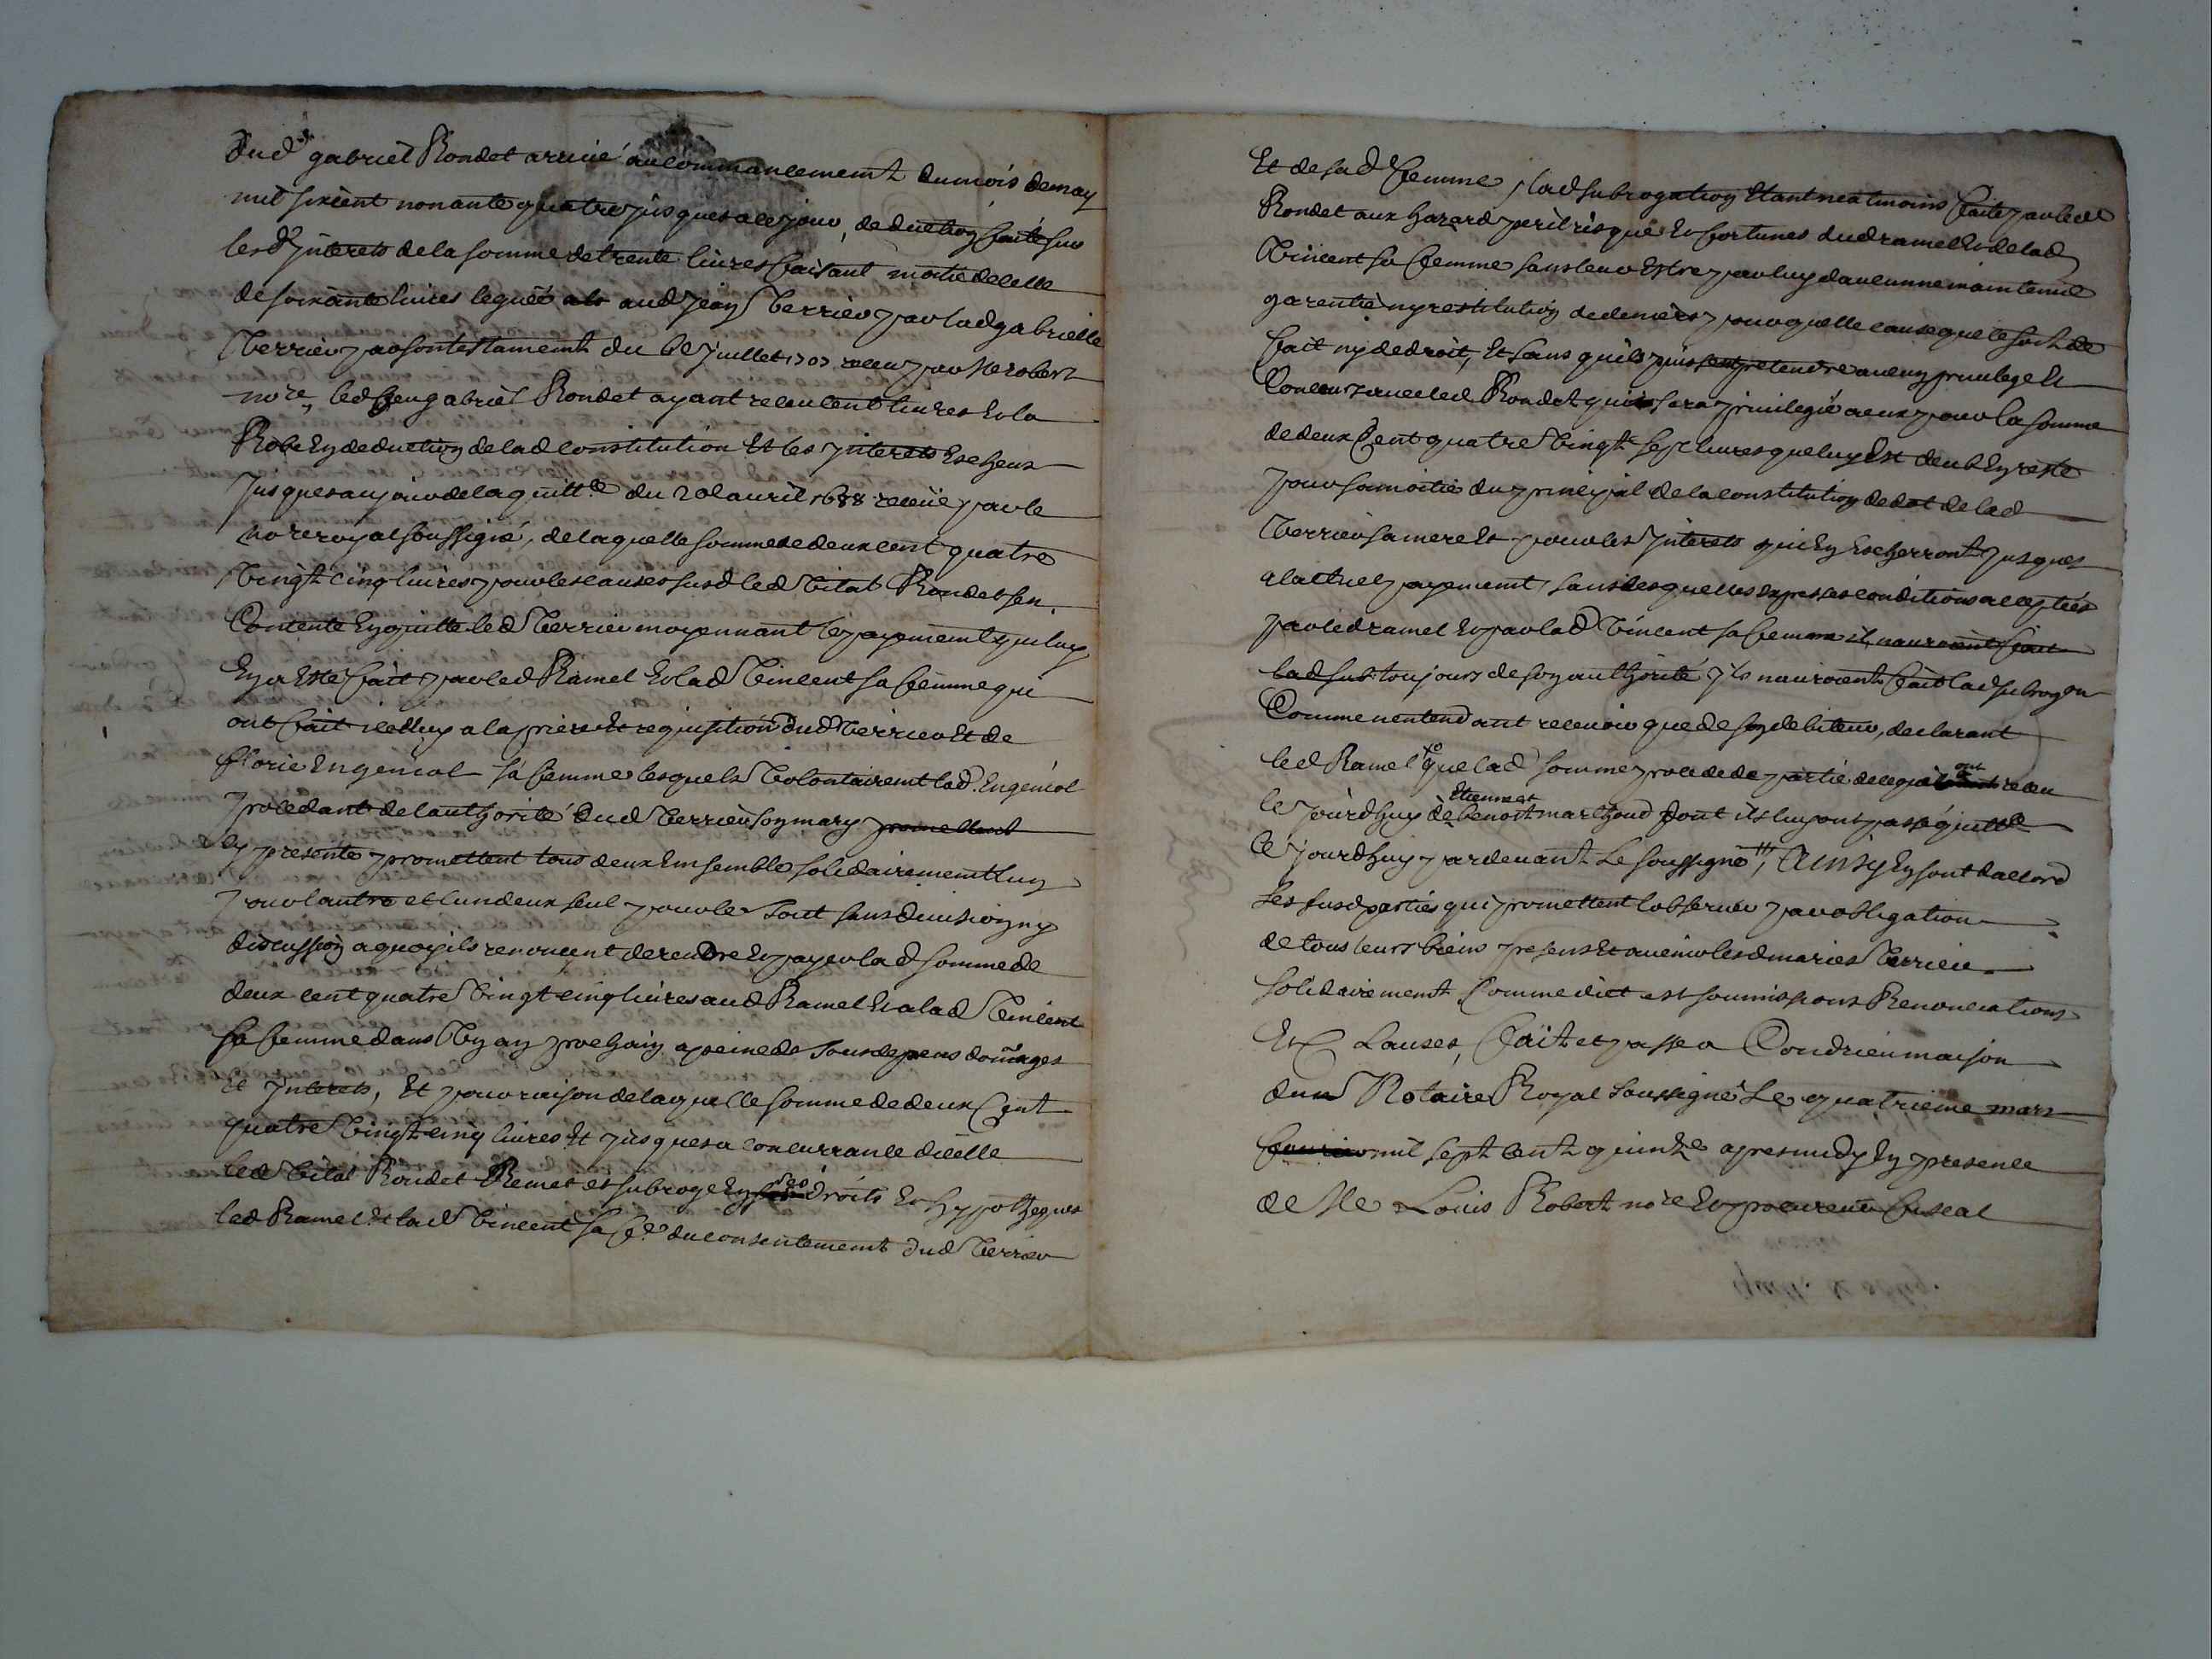 dud gabriel Rondet arrivé au commancement du mois de may
mil sixcent nonante quatre jusques a ce jour, deduction faite sur
lesd interets de la somme de trente livres faisant moitie de celle
de soixante livres leguée aud jean Terrier par lad gabrielle
Terrier par son testament du 6e juillet 1707 receu par Me Robert
nore, led feu gabriel Rondet ayant receu cent livres et la
Robe en deduction de lad constitution et les interets escheus
jusques au jour de la quittce du 20e avril 1688 receüe par le
nore royal soussigné, de laquelle somme de deux cent quatre
vingt cinq livres pour les causes susd led vital Rondet sen
Contente en quitte led Terrier moyennant le payement que luy
en a esté fait par led Ramel et lad vincent sa femme qui
ont fait icelluy a la priere et requisition dud Terrier et de
florie Engenïol sa femme lesquels volontairemt lad. Engeniol
procedant de lauthorité dud Terrier son mary promettent
cy presente promettent tous deux ensemble solidairement lun
pour lautre et lun deux seul pour le tout sans division ny
discussion a quoy ils renoncent de rendre et payer lad somme de
deux cent quatre vingt cinq livres aud Ramel et a lad vincent
sa femme dans un an prochain a peine de tous depens domages
et interets, Et pour raison de laquelle somme de deux Cent
quatre vingt cinq livres et jusques a concurrance dicelle
led vital Rondet Remet et subroge en ses droits et hypotheques
led Ramel et lad vincent sa fe. du consentement dud Terrier
Et de sad femme, lad subrogation etant neatmoins faite par led
Rondet aux hazard peril risque et fortunes dud ramel et de lad
vincent sa femme sans leur estre par luy daucunne maintenue
garentie ny restitution de deniers pour quelle cause que ce soit de
fait ny de droit, Et sans quils puissent pretendre aucun privilege et
Concours avec led Rondet qui sera privilegié a eux pour la somme
de deux Cent quatre vingt sept livres que luy est deub en reste
pour sa moitie du principal de la constitution de dot de lad
Terrier sa mere et pour les interets qui en escherront jusques
a lactuel payement, sans lesquelles expresses conditions acceptées
par led ramel et par lad vincent sa femme il nauroient fait
lad sub. toujours de son authorité ils nauroient fait lad subrogaon
Comme nentendant recevoir que de son debiteur, declarant
led Ramel que lad somme procede de partie de ce quils ont receu
le jourdhuy de Etienne et benoit marthoud dont ils luy ont passé quittce
Ce jourdhuy pardevant Le soussigné, Ainsy en sont daccord
Les susd parties qui promettent lobserver par obligation
de tous leurs biens presens et avenir lesd maries Terrier
solidairement Comme dict est soumissions Renonciations
Et Clauses, fait et passé a Condrieu maison
du Notaire Royal soussigné Le quatrieme mars
fevrier mil sept cent quinze apres midy en presence
de Me Louis Robert nore et procureur fiscal